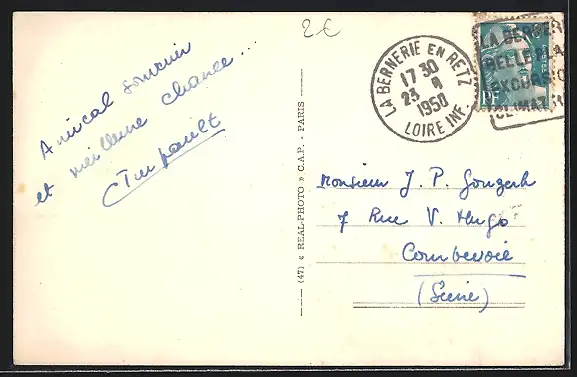 2€
Amical souvenir
et meilleure chance...
LA BERNERIE EN RETZ
17 30
23 8
1950
LOIRE INF.
LA BERNERIE
BELLE PLA
EXCURSIO
CLIMAT
(47) « REAL-PHOTO » C.A.P. - PARIS
Monsieur J. P.
7 Rue V. Hugo
Courbevoie
(Seine)